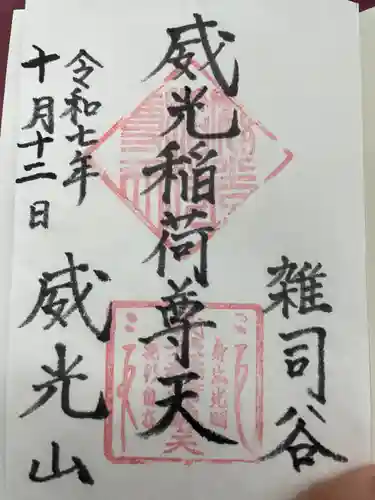 雑司谷
威光稲荷尊天
令和七年
十月十二日
威光山